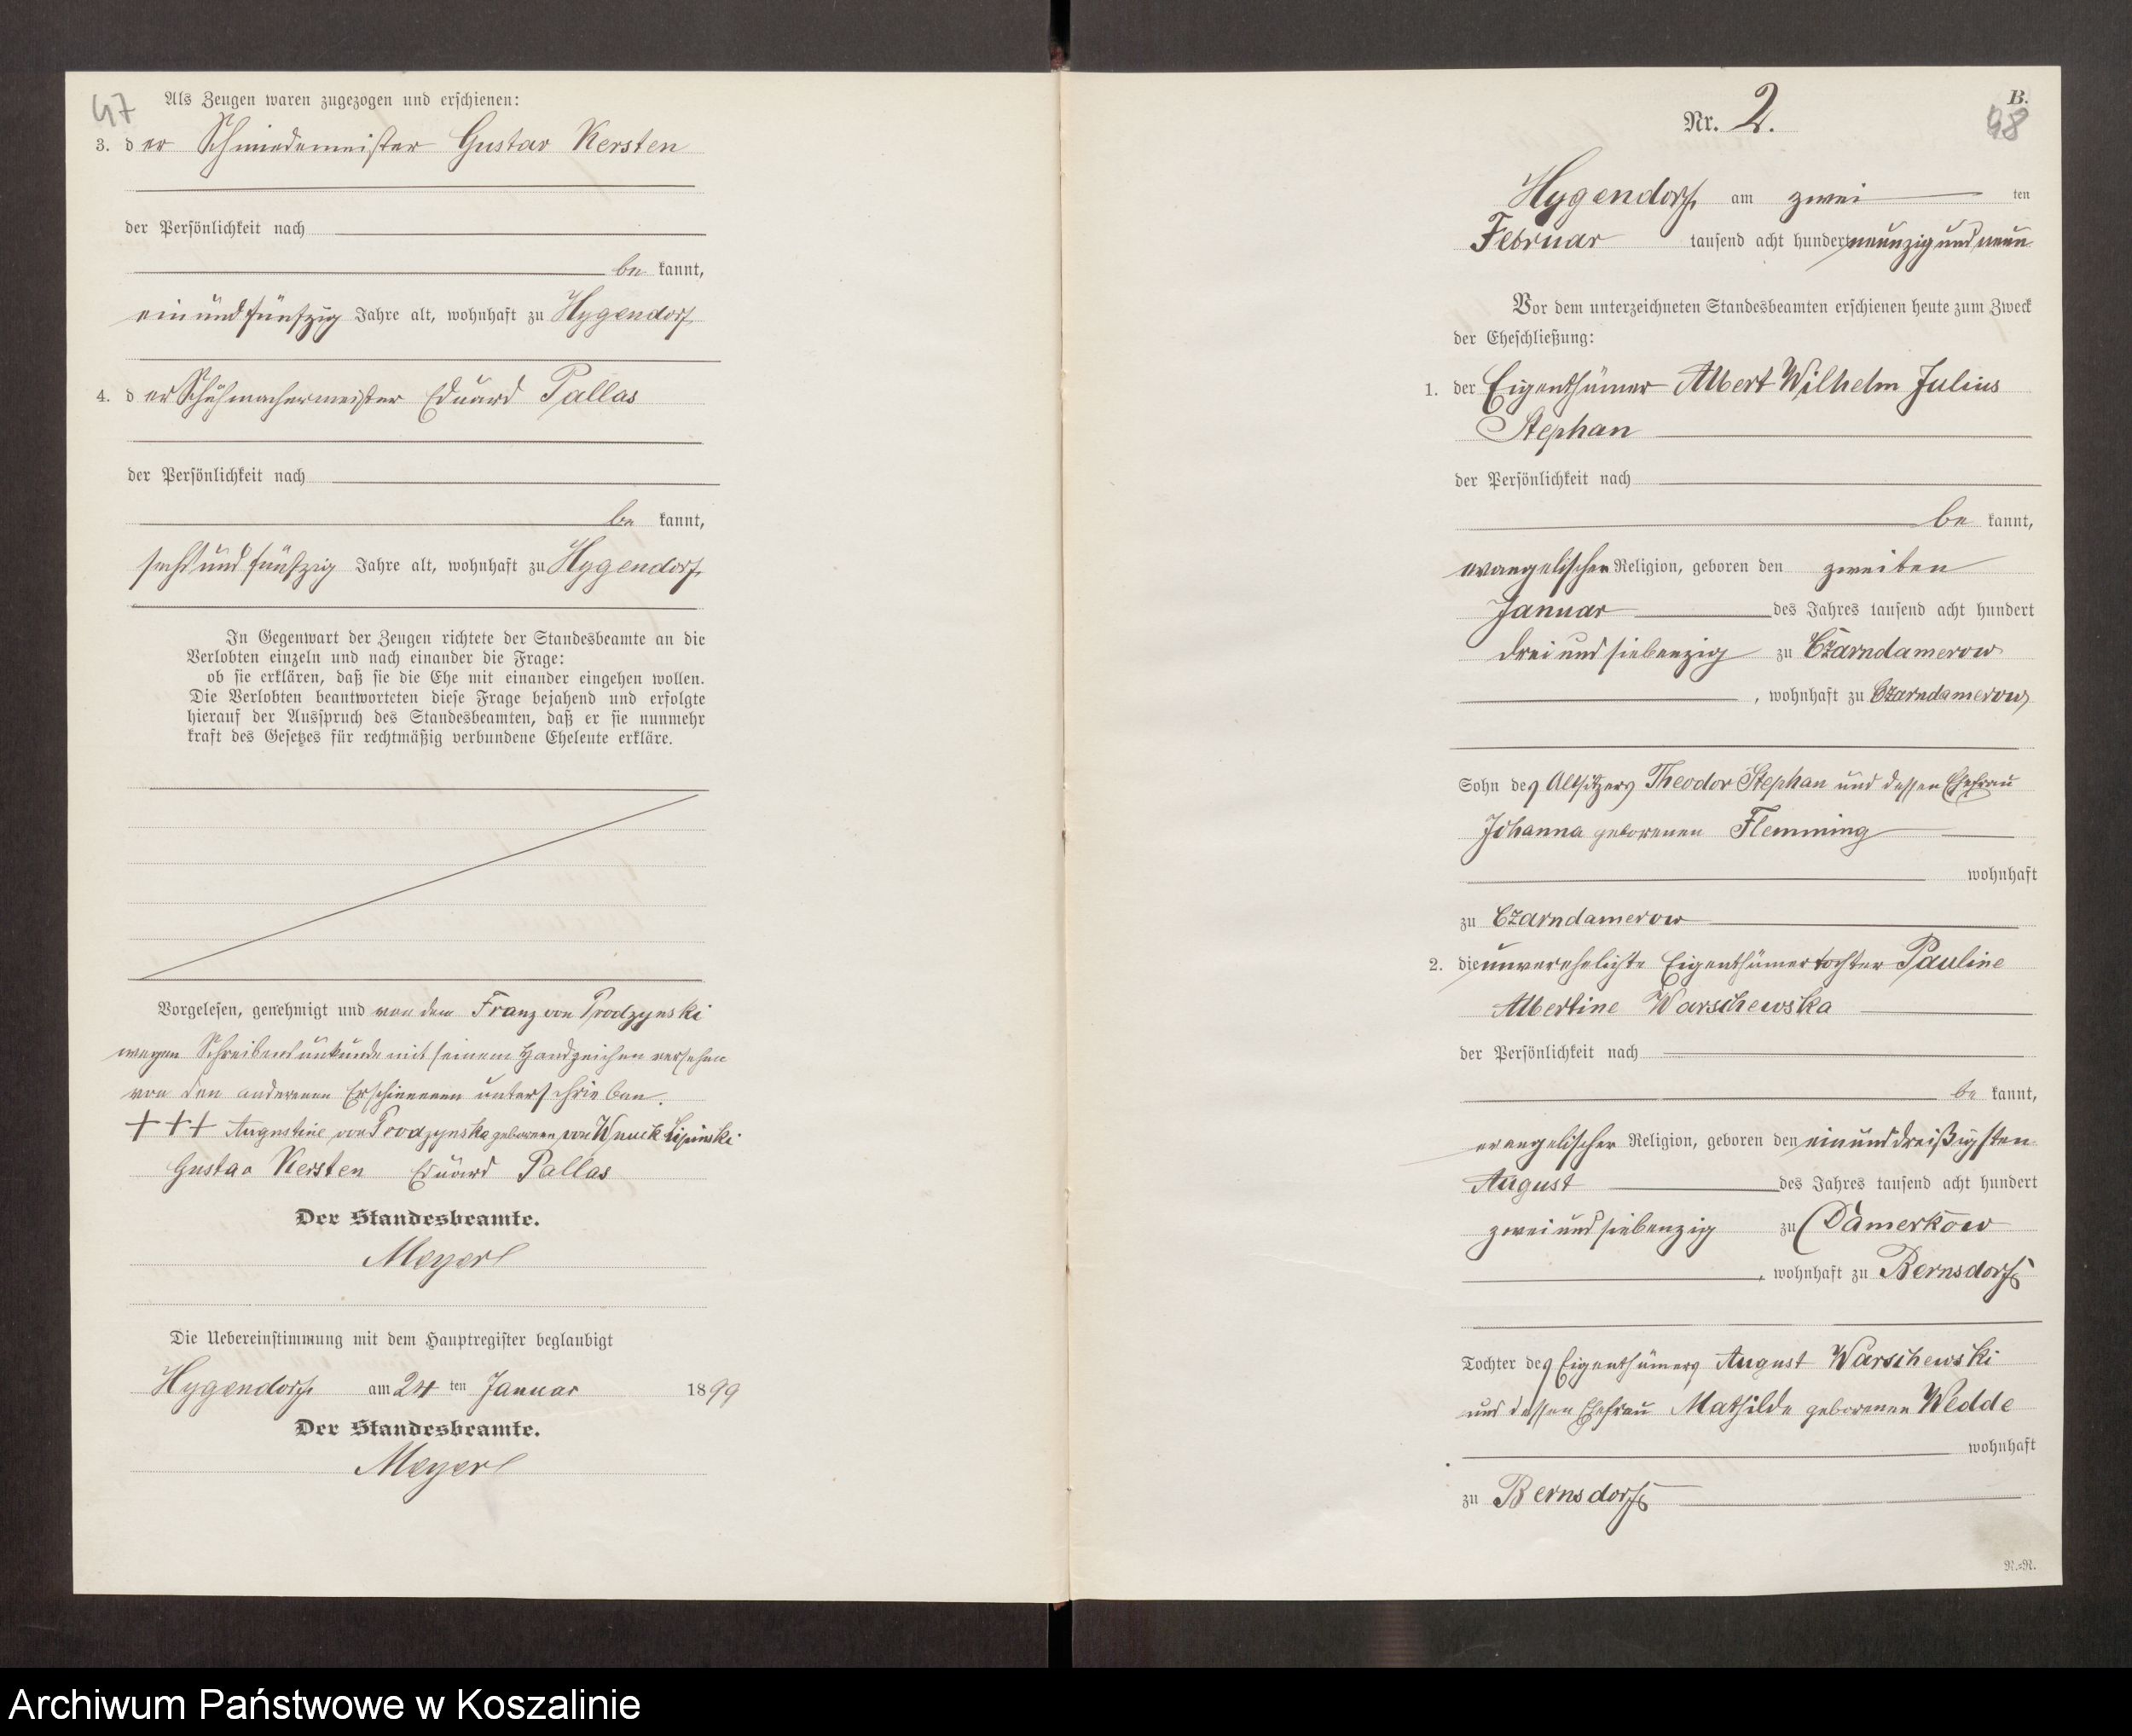 47
Als Zeugen waren zugezogen und erschienen:
3. der Schmiedemeister Gustav Kersten
der Persönlichkeit nach
be kannt,
ein und fünfzig Jahre alt, wohnhaft zu Hygendorf
4. der Schuhmachermeister Eduard Pallas
der Persönlichkeit nach
be kannt,
sechs und fünfzig Jahre alt, wohnhaft zu Hygendorf
In Gegenwart der Zeugen richtete der Standesbeamte an die
Verlobten einzeln und nach einander die Frage:
ob sie erklären, daß sie die Ehe mit einander eingehen wollen.
Die Verlobten beantworteten diese Frage bejahend und erfolgte
hierauf der Ausspruch des Standesbeamten, daß er sie nunmehr
kraft des Gesetzes für rechtmäßig verbundene Eheleute erkläre.
Vorgelesen, genehmigt und von dem Franz von Prodzynski
wegen Schreibensunkunde mit seinem Handzeichen versehen
von den anderenen Erschienenen unterschrieben.
+++ Augustine von Prodzynska geborenen von Wnuck Lipinski
Gustav Kersten Eduard Pallas
Der Standesbeamte.
Meyer
Die Uebereinstimmung mit dem Hauptregister beglaubigt
Hygendorf am 24 ten Januar 1899
Der Standesbeamte.
Meyer
B.
48
Nr. 2.
Hygendorf am zwei ten
Februar tausend acht hundert neunzig und neun
Vor dem unterzeichneten Standesbeamten erschienen heute zum Zweck
der Eheschließung:
1. der Eigenthümer Albert Wilhelm Julius
Stephan
der Persönlichkeit nach
be kannt,
evangelischer Religion, geboren den zweiten
Januar des Jahres tausend acht hundert
drei und siebenzig zu Czarndamerow
, wohnhaft zu Czarndamerow
Sohn des Altsitzers Theodor Stephan und dessen Ehefrau
Johanna geborenen Flemming
wohnhaft
zu Czarndamerow
2. die unverehelichte Eigenthümertochter Pauline
Albertine Warschewska
der Persönlichkeit nach
be kannt,
evangelischer Religion, geboren den ein und dreißigsten
August des Jahres tausend acht hundert
zwei und siebenzig zu Damerkow
, wohnhaft zu Bernsdorf
Tochter des Eigenthümers August Warschewski
und dessen Ehefrau Mathilde geborenen Wedde
wohnhaft
zu Bernsdorf
R.=R.
Archiwum Państwowe w Koszalinie